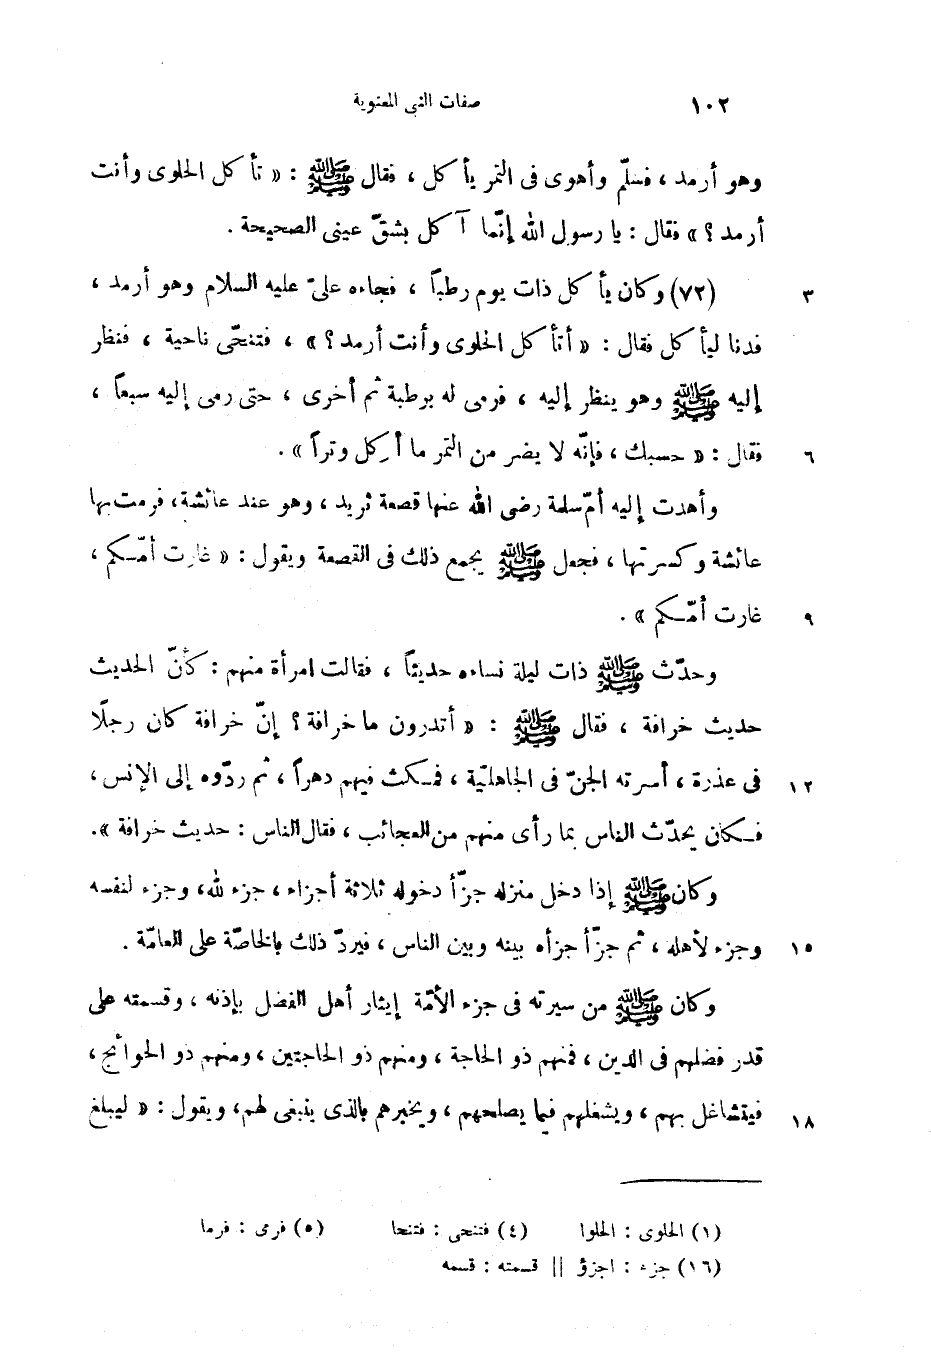 ١٠٢ صفات النبى المعنوية
وهو أرمد ، فسلّم وأهوى فى التمر يأكل ، فقال ﷺ : « تأكل الحلوى وأنت
أرمد ؟ » فقال : يا رسول الله إنّما آكل بشقّ عينى الصحيحة .
٣ (٧٢) وكان يأكل ذات يوم رطباً ، فجاءه علىّ عليه السلام وهو أرمد ،
فدنا ليأكل فقال : « أتأكل الحلوى وأنت أرمد ؟ » ، فتنحّى ناحية ، فنظر
إليه ﷺ وهو ينظر إليه ، فرمى له برطبة ثم أخرى ، حتى رمى إليه سبعاً ،
٦ فقال : « حسبك ، فإنّه لا يضر من التمر ما أُكِل وتراً » .
وأهدت إليه أمّ سلمة رضى الله عنها قصعة ثريد ، وهو عند عائشة، فرمت بها
عائشة وكسرتها ، فجعل ﷺ يجمع ذلك فى القصعة ويقول : « غارت أمّكم ،
٩ غارت أمّكم » .
وحدّث ﷺ ذات ليلة نساءه حديثاً ، فقالت امرأة منهم : كأنّ الحديث
حديث خرافة ، فقال ﷺ : « أتدرون ما خرافة ؟ إنّ خرافة كان رجلًا
١٢ فى عذرة ، أسرته الجنّ فى الجاهليّة ، فمكث فيهم دهراً ، ثم ردّوه إلى الإنس ،
فكان يحدّث الناس بما رأى منهم من العجائب ، فقال الناس : حديث خرافة ».
وكان ﷺ إذا دخل منزله جزّأ دخوله ثلاثة أجزاء ، جزء لله، وجزء لنفسه
١٥ وجزء لأهله ، ثم جزّأ جزأه بينه وبين الناس ، فيردّ ذلك بالخاصّة على العامّة .
وكان ﷺ من سيرته فى جزء الأمّة إيثار أهل الفضل بإذنه ، وقسمته على
قدر فضلهم فى الدين ، فمنهم ذو الحاجة ، ومنهم ذو الحاجتين ، ومنهم ذو الحوائج ،
١٨ فيتشاغل بهم ، ويشغلهم فيما يصلحهم ، ويخبرهم بالذى ينبغى لهم، ويقول : « ليبلغ
(١) الحلوى : الحلوا (٤) فتنحى : فتنحا (٥) فرمى : فرما
(١٦) جزء : اجزؤ || قسمته : قسمه